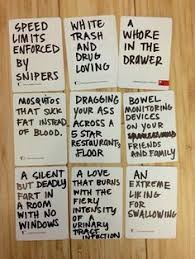 SPEED
LIMITS
ENFORCED
BY
SNIPERS
WHITE
TRASH
AND
DRUG
LOVING
A
WHORE
IN THE
DRAWER
MOSQUITOS
THAT SUCK
FAT INSTEAD
OF BLOOD.
DRAGGING
YOUR ASS
ACROSS A
5 STAR
RESTAURANTS
FLOOR
BOWEL
MONITORING
DEVICES
ON YOUR
FRIENDS
AND FAMILY
A SILENT
BUT DEADLY
FART IN
A ROOM
WITH NO
WINDOWS
A LOVE
THAT BURNS
WITH THE
FIERY
INTENSITY
OF A
URINARY
TRACT INFECTION
AN
EXTREME
LIKING FOR
SWALLOWING